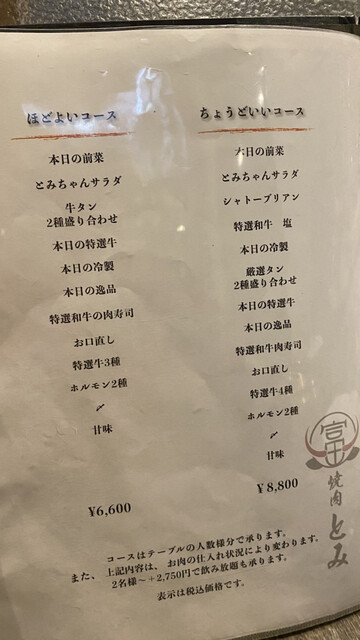 ほどよいコース
本日の前菜
とみちゃんサラダ
牛タン
2種盛り合わせ
本日の特選牛
本日の冷製
本日の逸品
特選和牛の肉寿司
お口直し
特選牛3種
ホルモン2種
〆
甘味
¥6,600
ちょうどいいコース
本日の前菜
とみちゃんサラダ
シャトーブリアン
特選和牛 塩
本日の冷製
厳選タン
2種盛り合わせ
本日の特選牛
本日の逸品
特選和牛肉寿司
お口直し
特選牛4種
ホルモン2種
〆
甘味
¥8,800
コースはテーブルの人数様分で承ります。
上記内容は、お肉の仕入れ状況により変わります。
また、2名様〜+2,750円で飲み放題も承ります。
表示は税込価格です。
富
焼肉 とみ